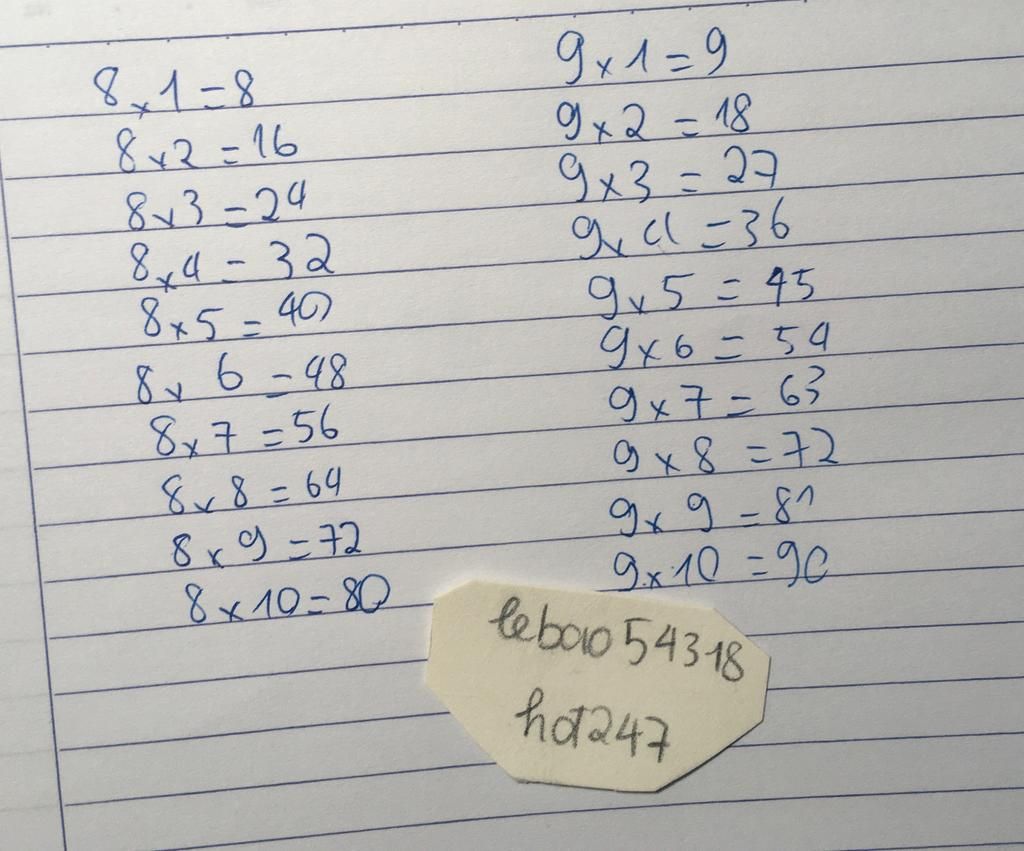 8 x 1 = 8
8 x 2 = 16
8 x 3 = 24
8 x 4 = 32
8 x 5 = 40
8 x 6 = 48
8 x 7 = 56
8 x 8 = 64
8 x 9 = 72
8 x 10 = 80
9 x 1 = 9
9 x 2 = 18
9 x 3 = 27
9 x 4 = 36
9 x 5 = 45
9 x 6 = 54
9 x 7 = 63
9 x 8 = 72
9 x 9 = 81
9 x 10 = 90
lebao54318
hot247